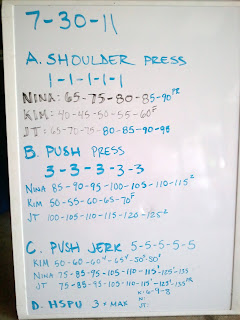 7-30-11
A. SHOULDER PRESS
1-1-1-1-1
NINA: 65-75-80-85-90 PR
KIM: 40-45-50-55-60 F
JT: 65-70-75-80-85-90-95
B. PUSH PRESS
3-3-3-3-3
NINA 85-90-95-100-105-110-115 2
KIM 50-55-60-65-70 F
JT 100-105-110-115-120-125-2
C. PUSH JERK 5-5-5-5-5
KIM 50-60-60
NINA 75-85-95-105-110-115
JT 75-85-95-105-110-115
K: 6-9-8
N:
D. HSPU 3 x MAX
JT: